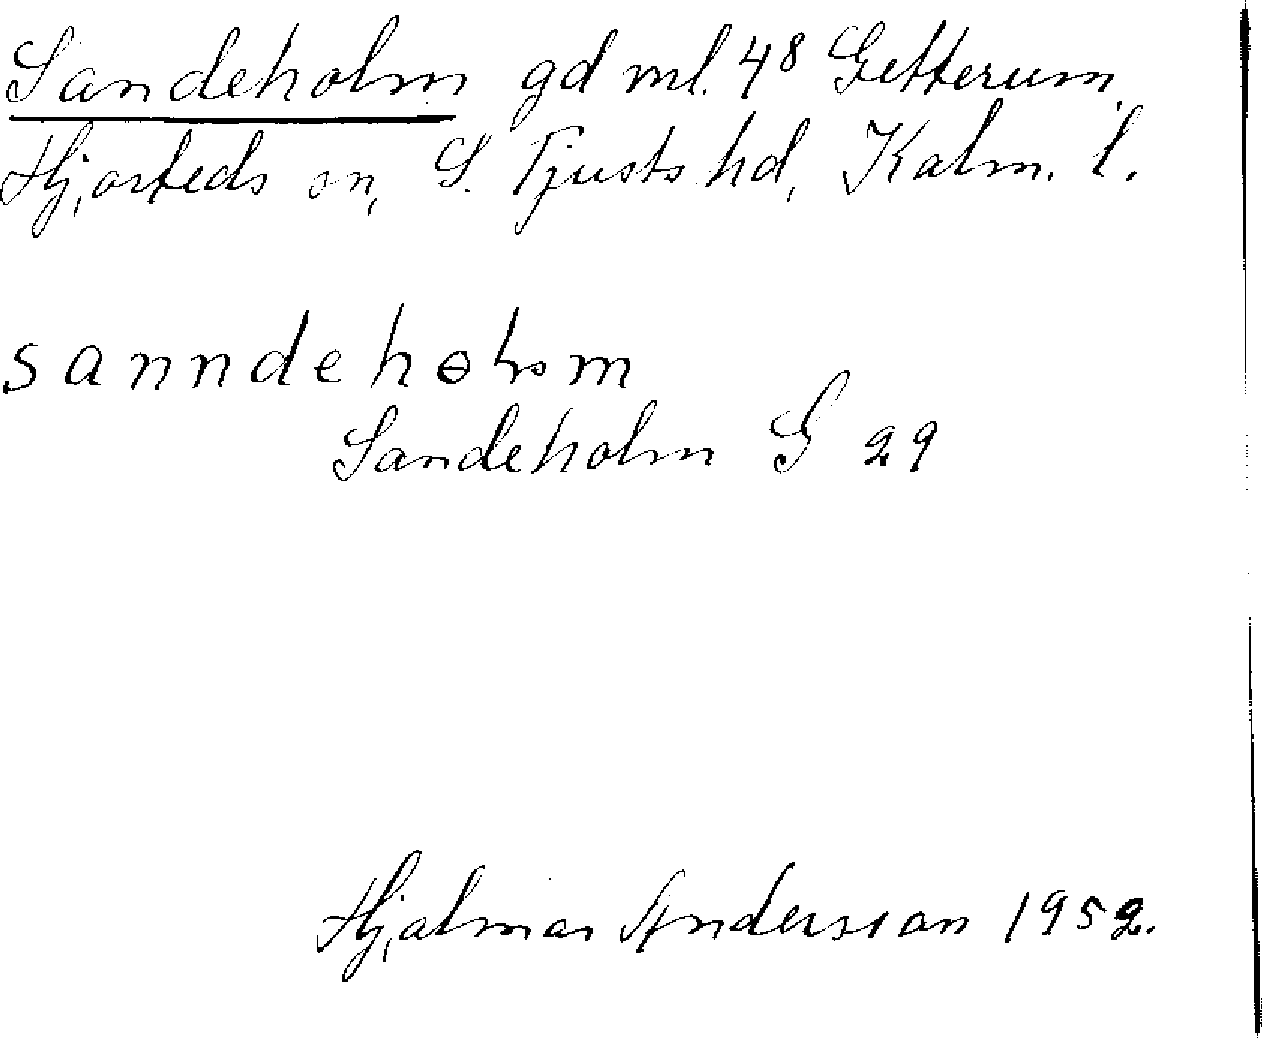 Sandeholm gd ml. 4⁸ Getterum,
Hjorteds sn, S. Tjusts hd, Kalm. l.
sanndehɵlm
Sandeholm G 29
Hjalmar Andersson 1952.